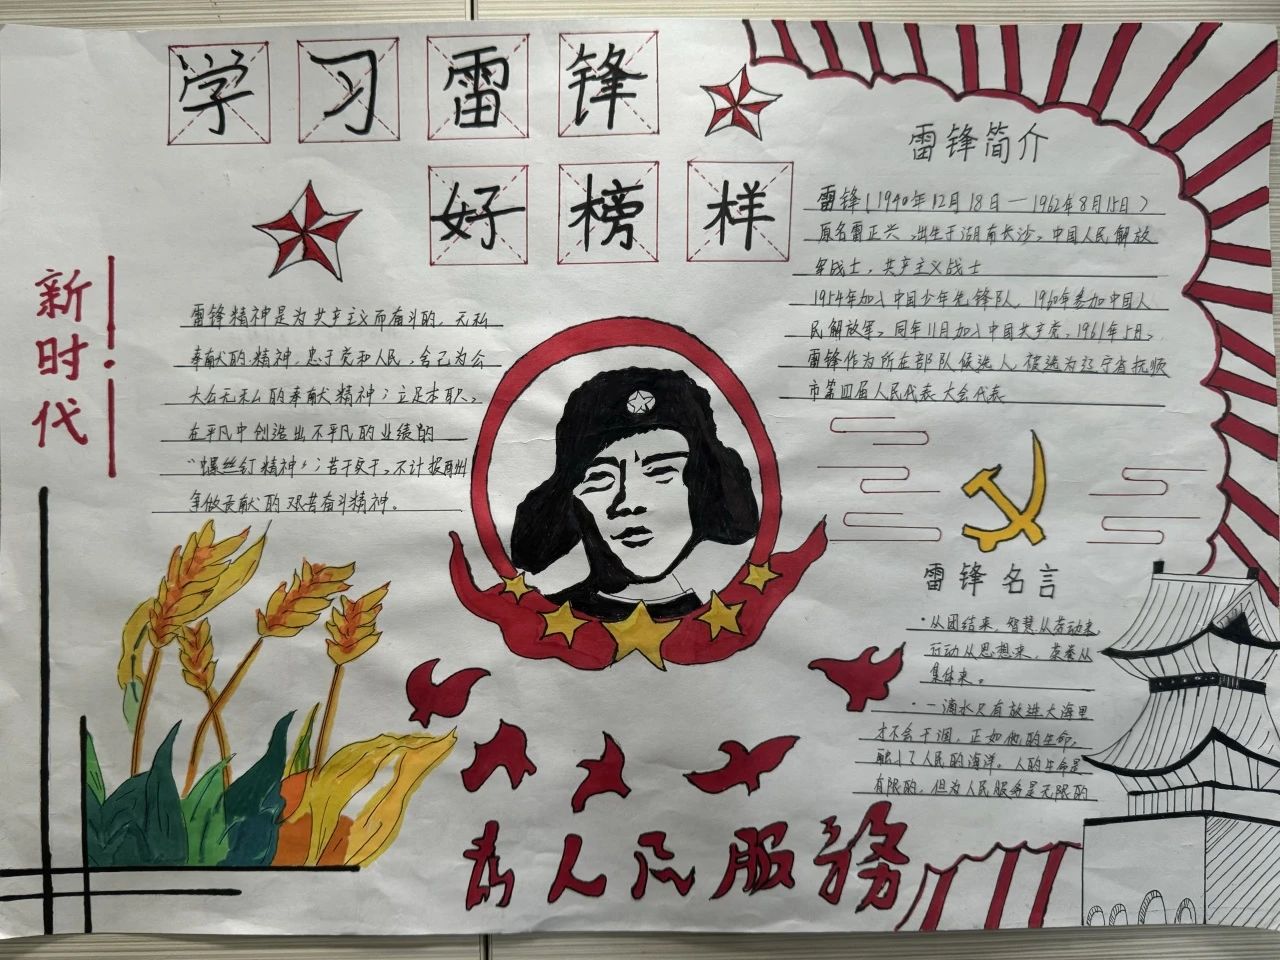 学习雷锋
好榜样
新时代
雷锋精神是为共产主义而奋斗的、无私
奉献的精神，忠于党和人民，舍己为公
大公无私的奉献精神；立足本职，
在平凡中创造出不平凡的业绩的
“螺丝钉精神”；苦干实干，不计报酬
争做贡献的艰苦奋斗精神。
雷锋简介
雷锋（1940年12月18日—1962年8月15日）
原名雷正兴，出生于湖南长沙，中国人民解放
军战士，共产主义战士
1954年加入中国少年先锋队，1960年参加中国人
民解放军，同年11月加入中国共产党，1961年5月，
雷锋作为所在部队候选人，被选为辽宁省抚顺
市第四届人民代表大会代表
雷锋名言
·从团结来，智慧从劳动来，
行动从思想来，荣誉从
集体来。
·一滴水只有放进大海里
才不会干涸，正如他的生命，
融入了人民的海洋。人的生命是
有限的，但为人民服务是无限的
为人民服務